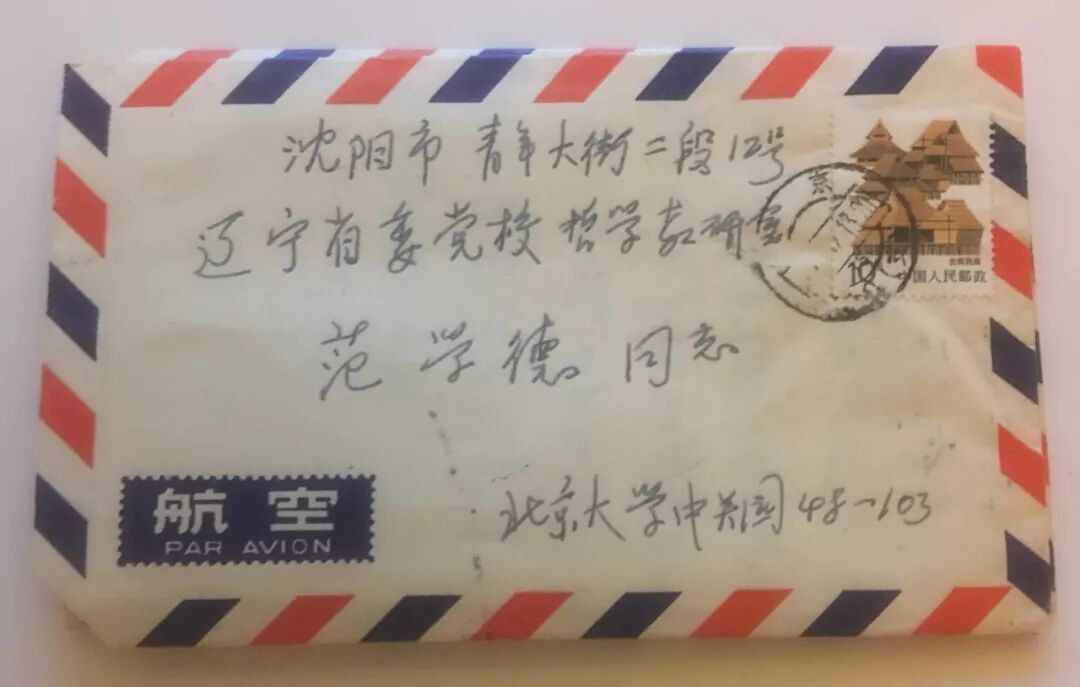 沈阳市 青年大街二段12号
辽宁省委党校 哲学教研室
范学德 同志
北京大学中关园48-103
航空
PAR AVION
京
10
云南民居
中国人民邮政